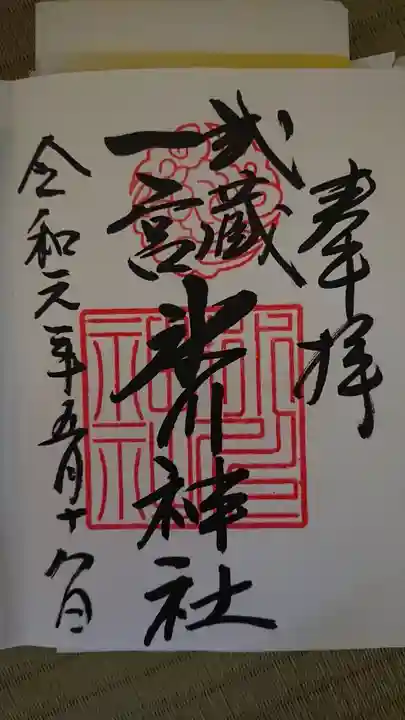 奉拝
武蔵
一宮
氷川神社
令和元年五月十九日